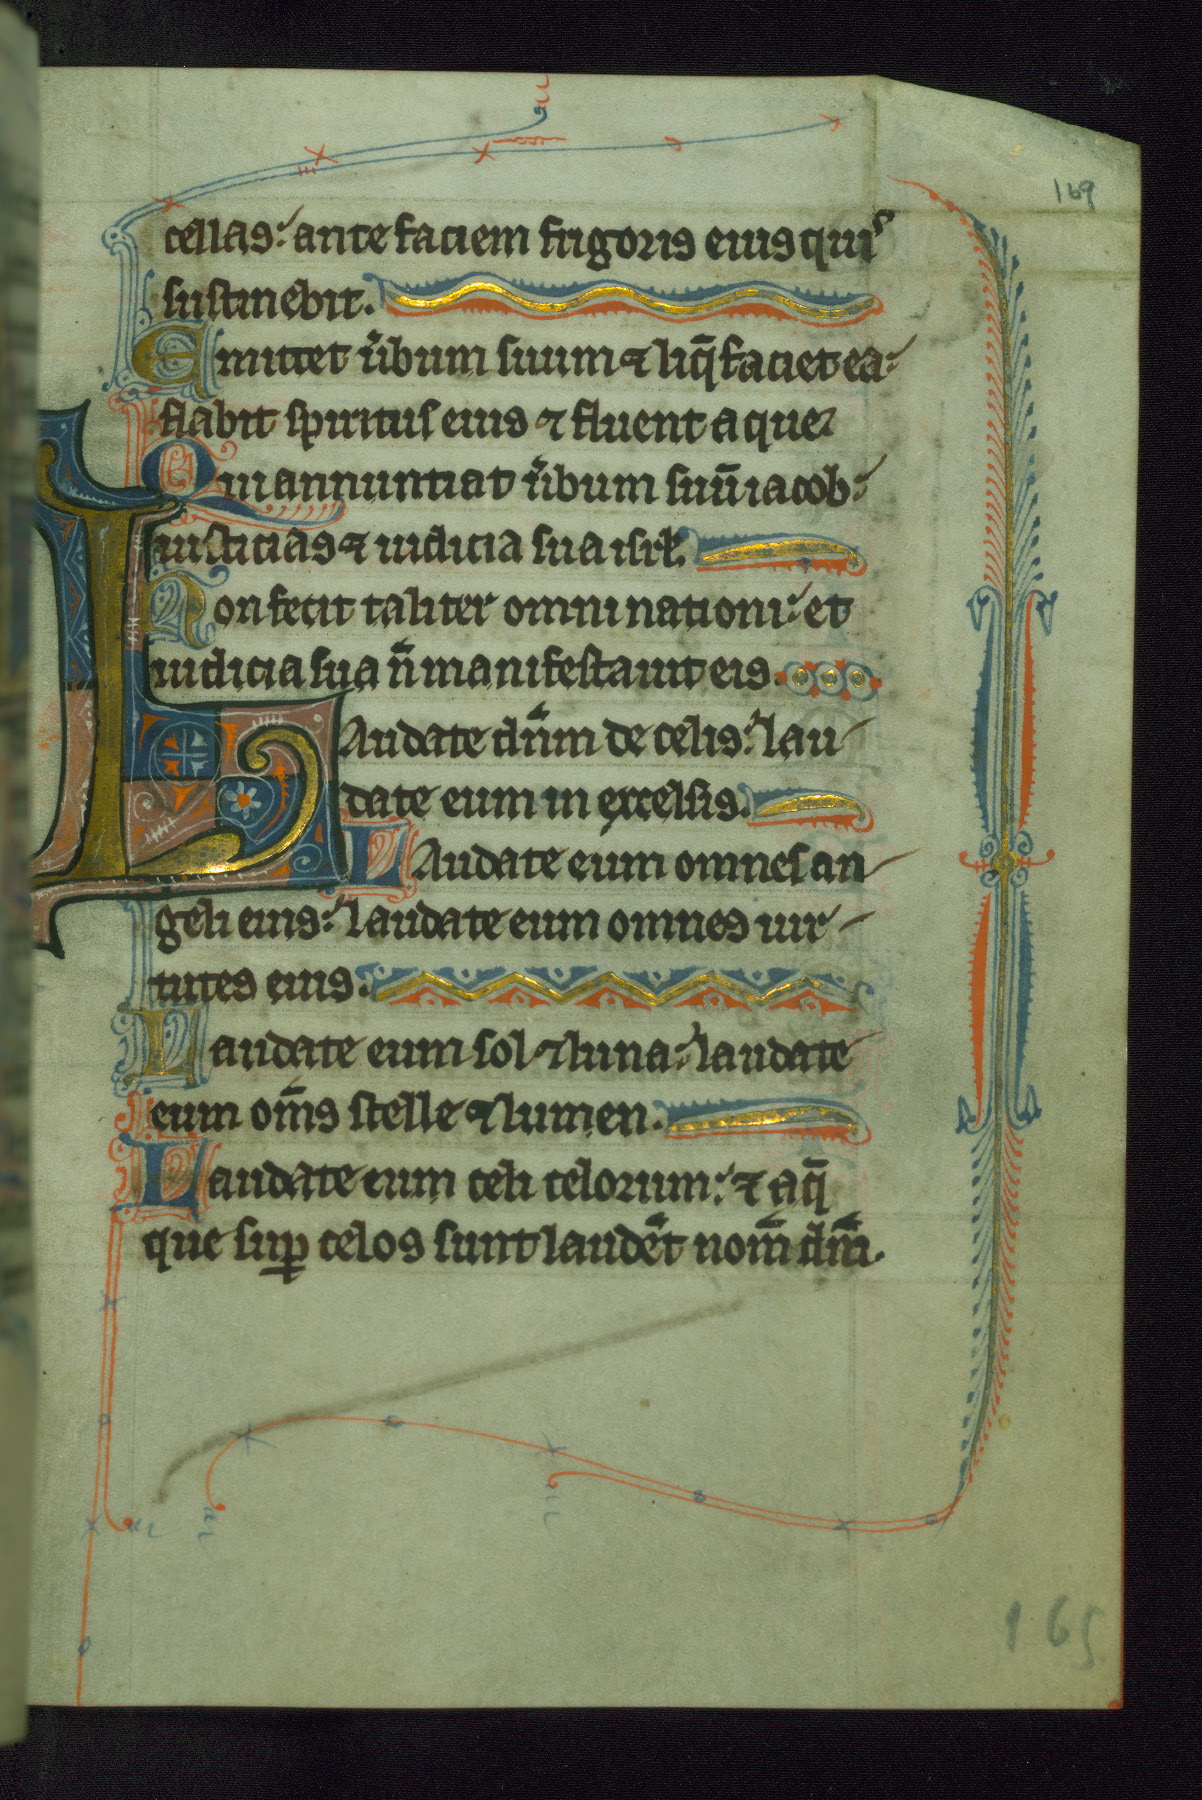 169
cellas: ante faciem frigoris eius quis
sustinebit.
Emittet u̾bum suum ⁊ liq̄faciet ea:
flabit spiritus eius ⁊ fluent aque.
Qui annuntiat u̾bum suū iacob:
iusticias ⁊ iudicia sua isrl̄.
Non fecit taliter omni nationi: et
iudicia sua n̄ manifestauit eis.
LAudate dn̄m de celis: lau
date eum in excelsis.
LAudate eum omnes an
geli eius: laudate eum omnes uir
tutes eius.
Laudate eum sol ⁊ luna: laudate
eum om̄s stelle ⁊ lumen.
Laudate eum celi celorum: ⁊ aq̄
que suꝑ celos sunt laudēt nom̄ dn̄i.
165